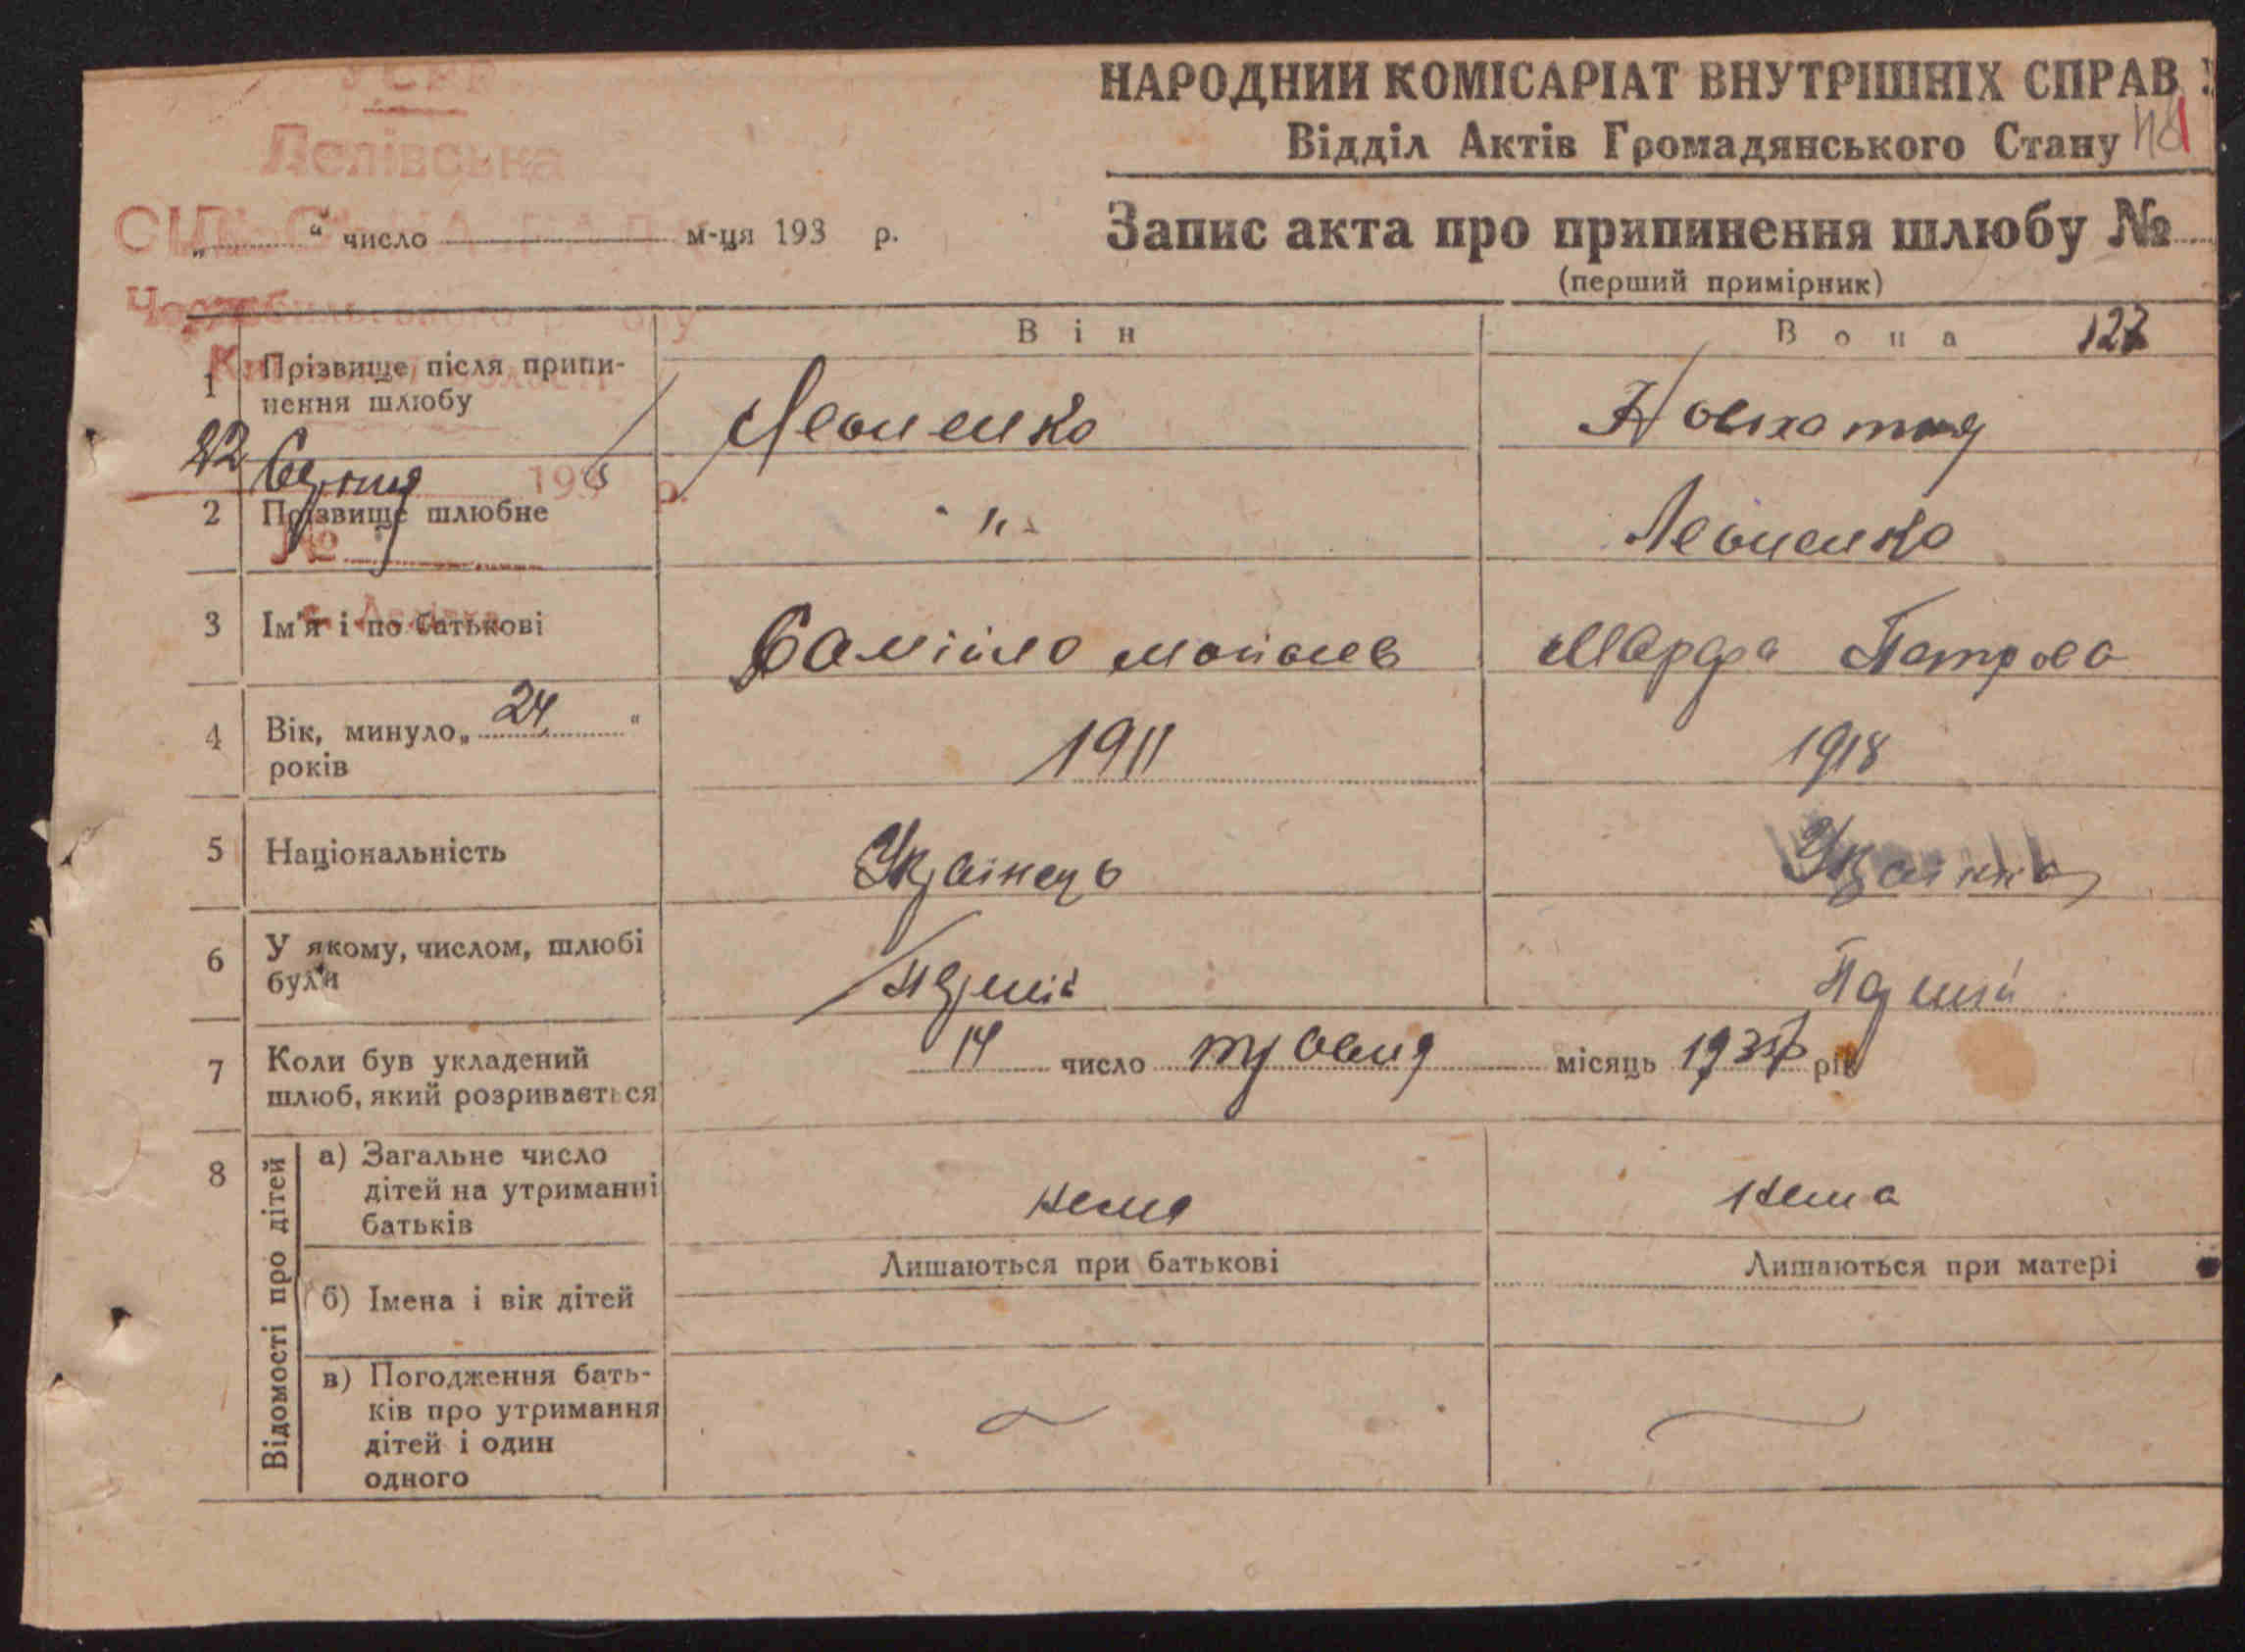 УСРР
Лелівська
НАРОДНИЙ КОМІСАРІАТ ВНУТРІШНІХ СПРАВ
Відділ Актів Громадянського Стану
„ “ число м-ця 193 р.
Запис акта про припинення шлюбу №
(перший примірник)
Він
Вона 127
1 Прізвище після припинення шлюбу
Леоненко
22 Серпня 1935 р.
2 Прізвище шлюбне
-"-
Леоненко
№
с. Лелівка
3 Ім'я і по батькові
Самійло
Марфа Петрова
4 Вік, минуло „24“ років
1911
1918
5 Національність
Українець
Українка
6 У якому, числом, шлюбі були
Перший
Перший
7 Коли був укладений шлюб, який розривається
14 число травня місяць рік
8 Відомості про дітей
а) Загальне число дітей на утриманні батьків
нема
нема
Лишаються при батькові
Лишаються при матері
б) Імена і вік дітей
в) Погодження батьків про утримання дітей і один одного